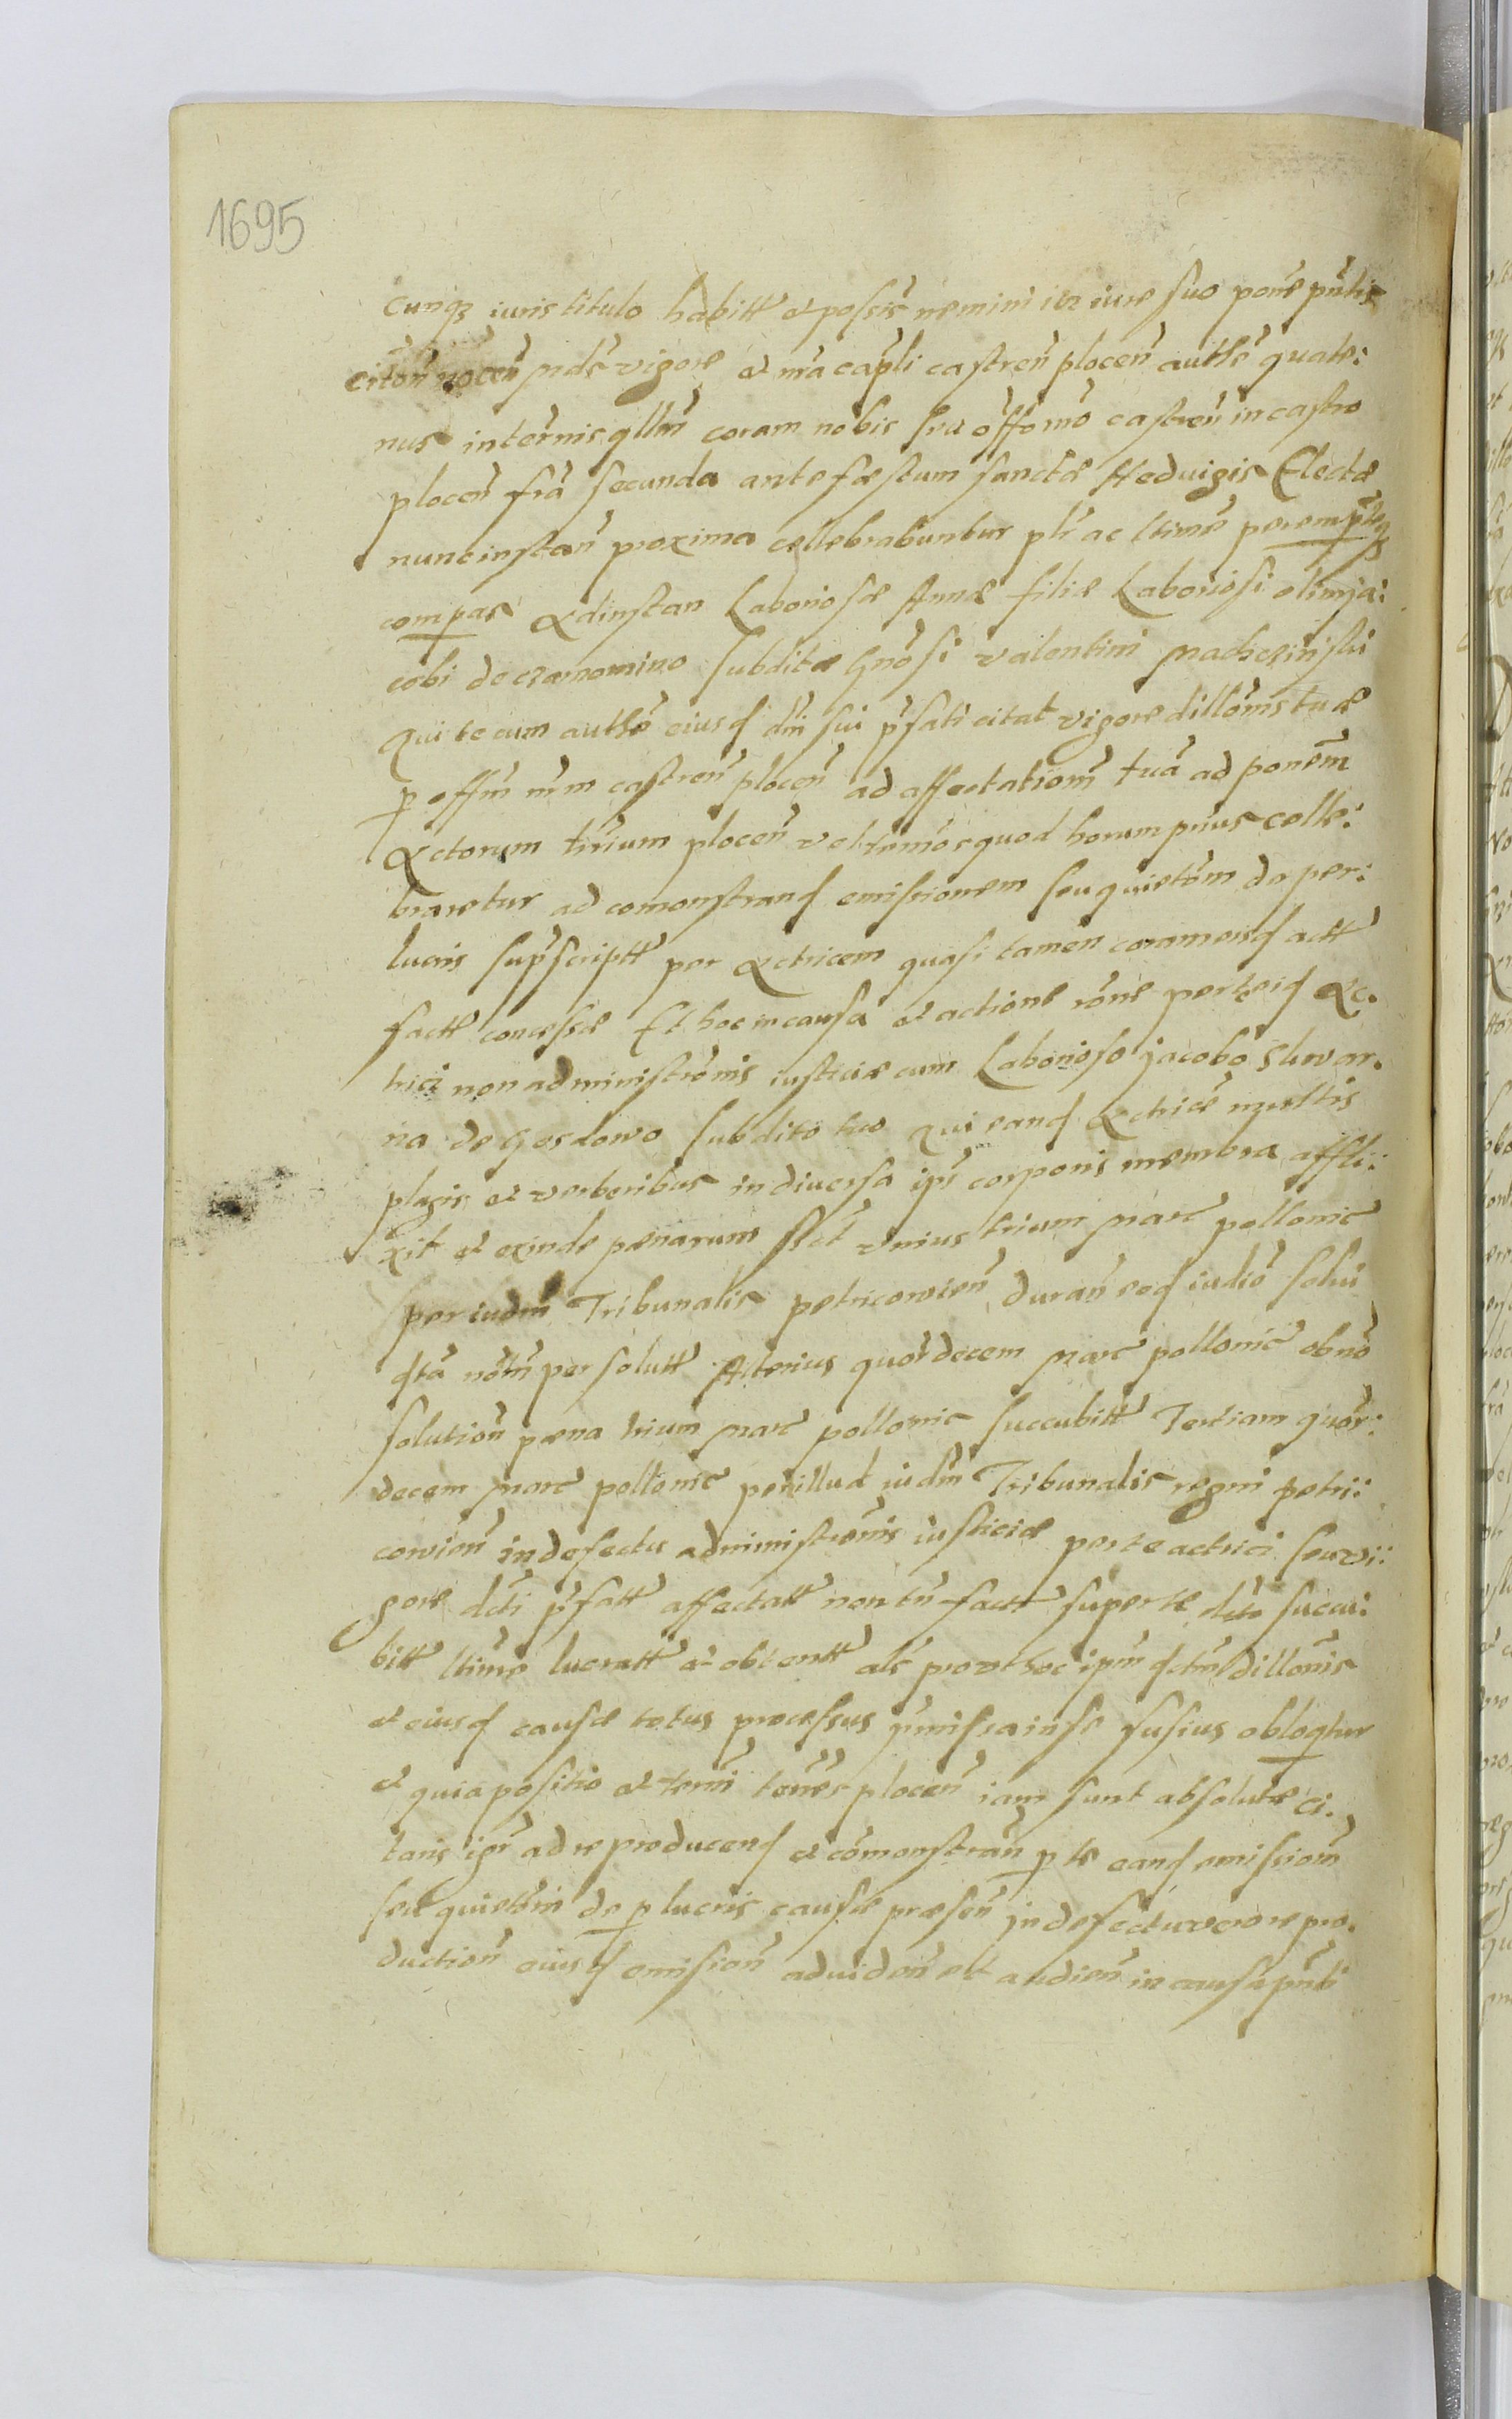 1695
cunqz iuris titulo habitt et possis nemini in iure suo pone pntis
citon nocen mde vigore et nra capli castren plocen authe quate:
nus in ternis qllm coram nobis seu offo nro castren in castro
plocen fria secunda ante fæstum sanctæ Heduigis Electæ
nunc instan proxima cellebrabuntur plr ac ltime peremptieqz
compas Adinstan Laboriosæ Annæ filiæ Laboriosi olim ja:
cobi de cramomino subditæ Gnosi valentini
qui te cum autho eiusd dni sui pfati citat vigore dillonis tuæ
p offm nrm castren plocen ad affectationem tua ad ponem
Actorum trium plocen vel tenuos quod horum prius celle:
braretur ad comonstrand emissionem seu quietom de per:
lucris supscriptt per Actricem quasi tamen coram eisd actt
factæ concessæ Et hoc in causa et actione rone per te eid Ac.
trici non administronis iusticiæ cum Laborioso jacobo Skwar.
na de Goslowo subdito tuo qui eand Actrice multis
plagis et verberibus in diuersa ips corporis membra affli:
xit et exinde pænarum unius trium marc pollonic
per iudm Tribunalis petricouien duran eod iudio solui
dcta notm persolutt Alterius quor decem marc pollonic ob no
solution pæna trium marc pollonic succubitt Tertiam quor:
decem marc pollonic per illud iudm Tribunalis regni petri:
couien in defectu administronis iusticiæ per te actrici seu vi:
gore dcti pfatt affectatt non tn factt super te dcto succu:
bitt ltime lucratt et obtentt als prout hoc ipm dctm dillonis
et eiusd causæ totus processus pmissa in se fusius obloqtur
et quia positio et terni tenes plocen iam sunt absolutæ ci.
taris igr ad reproducend et comonstran p te eand emissiom
seu quietom de p lucris causæ præsen in defectu vero repro.
duction eiusd emission ad uiden et audien in causa pnti